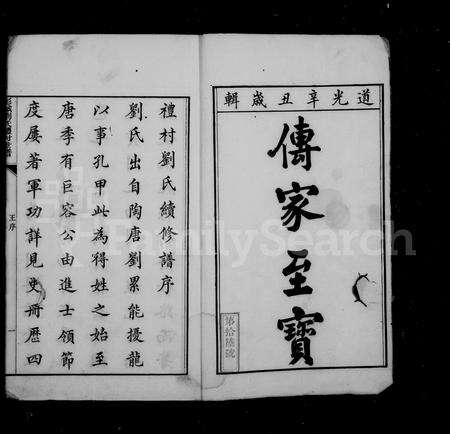 道光辛丑歲輯
傳家至寶
第拾陸號
禮村劉氏續修譜序
劉氏出自陶唐劉累能擾龍
以事孔甲此為得姓之始至
唐季有巨容公由進士領節
度屢著軍功詳見史冊歷四
王序
一
FamilySearch